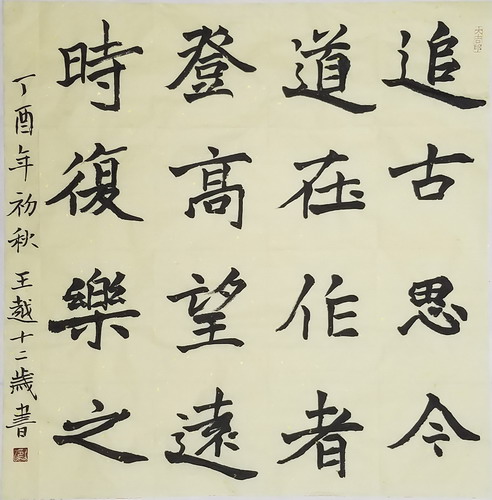 追古思今
道在作者
登高望遠
時復樂之
丁酉年初秋王越十二歲書